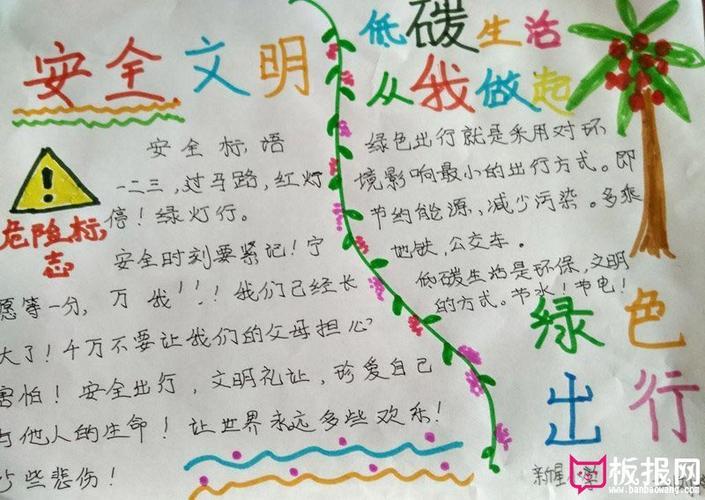 安全文明
安全标语
一二三，过马路，红灯
停！绿灯行。
危险标
志
安全时刻要紧记！宁
愿等一分，万 我！！！我们已经长
大了！千万不要让我们的父母担心？
害怕！安全出行，文明礼让，珍爱自己
与他人的生命！让世界永远多些欢乐！
少些悲伤！
低碳生活
从我做起
绿色出行就是采用对环
境影响最小的出行方式。即
节约能源、减少污染。多乘
地铁，公交车。
低碳生活是环保，文明
的方式。节水！节电！
绿色
出行
新星小学
板报网
www.banbaowang.com